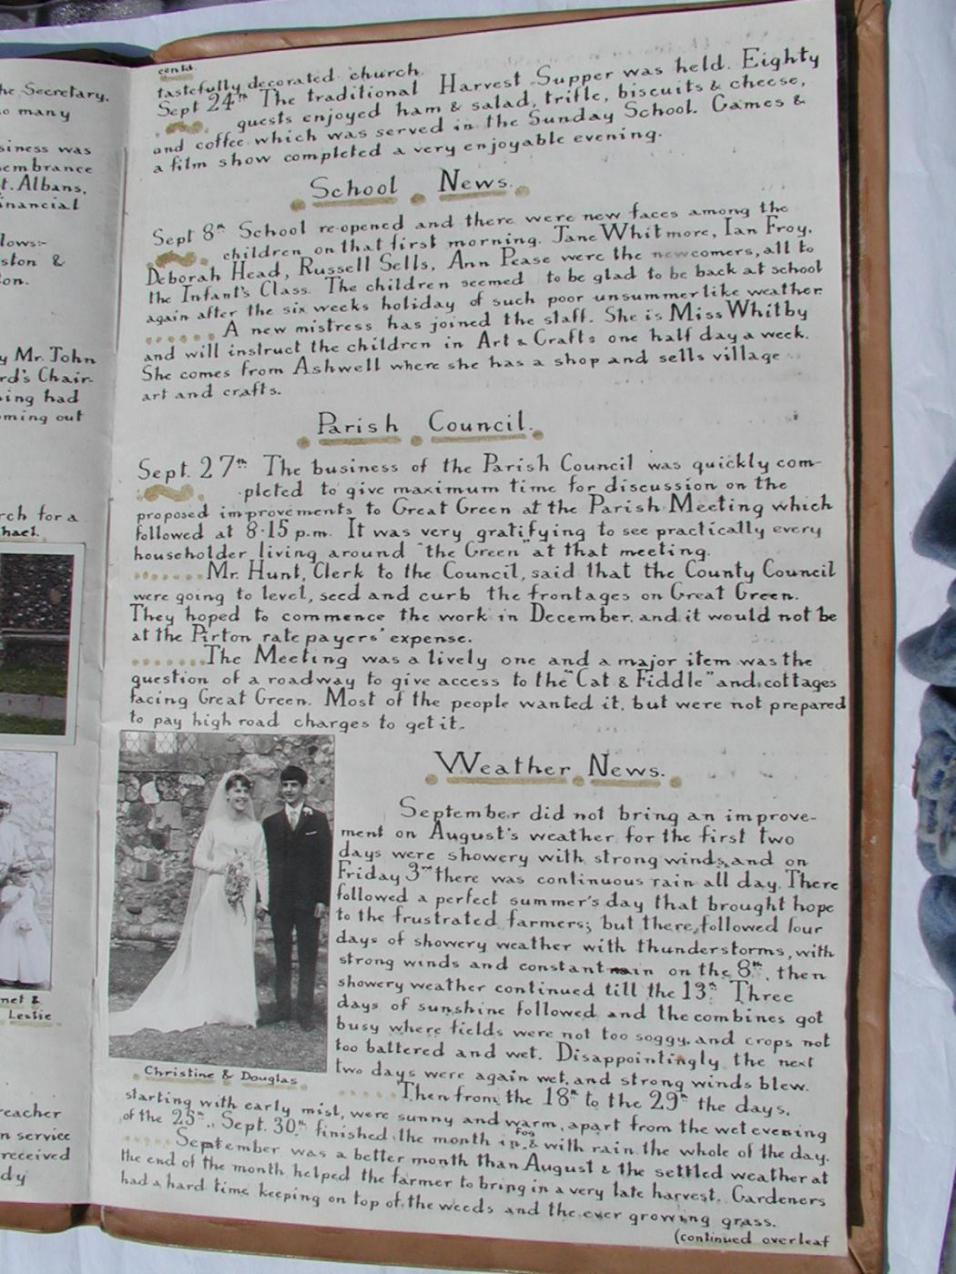 he Secretary.
o many
siness was
embrance
t. Albans,
inancial
lows:-
ston &
on.
y Mr. John
rd's Chair-
ing had
ming out
rch for a
hael.
net &
Leslie
reacher
n service
received
dy
contd.
tastefully decorated church.
Sept 24th The traditional Harvest Supper was held. Eighty
guests enjoyed ham & salad, trifle, biscuits & cheese,
and coffee which was served in the Sunday School. Games &
a film show completed a very enjoyable evening.
School News.
Sept 8th School re-opened and there were new faces among the
children on that first morning. Jane Whitmore, Ian Froy,
Deborah Head, Russell Sells, Ann Pease were the newcomers, all to
the Infant's Class. The children seemed to be glad to be back at school
again after the six weeks holiday of such poor unsummerlike weather.
A new mistress has joined the staff. She is Miss Whitby
and will instruct the children in Art & Crafts one half day a week.
She comes from Ashwell where she has a shop and sells village
art and crafts.
Parish Council.
Sept. 27th The business of the Parish Council was quickly com-
pleted to give maximum time for discussion on the
proposed improvements to Great Green at the Parish Meeting which
followed at 8·15 p.m. It was very gratifying to see practically every
householder living around "the Green" at that meeting.
Mr. Hunt, Clerk to the Council, said that the County Council
were going to level, seed and curb the frontages on Great Green.
They hoped to commence the work in December, and it would not be
at the Pirton rate payers' expense.
The Meeting was a lively one and a major item was the
question of a roadway to give access to the "Cat & Fiddle" and cottages
facing Great Green. Most of the people wanted it, but were not prepared
to pay high road charges to get it.
Weather News.
September did not bring an improve-
ment on August's weather for the first two
days were showery with strong winds, and on
Friday 3rd there was continuous rain all day. There
followed a perfect summer's day that brought hope
to the frustrated farmers; but there followed four
days of showery weather with thunderstorms, with
strong winds and constant rain on the 8th, then
showery weather continued till the 13th. Three
days of sunshine followed and the combines got
busy where fields were not too soggy, and crops not
too battered and wet. Disappointingly the next
two days were again wet, and strong winds blew.
Then from the 18th to the 29th the days,
starting with early mist, were sunny and warm, apart from the wet evening
of the 25th. Sept. 30th finished the month in fog & with rain the whole of the day.
September was a better month than August & the settled weather at
the end of the month helped the farmer to bring in a very late harvest. Gardeners
had a hard time keeping on top of the weeds and the ever growing grass.
(continued overleaf
Christine & Douglas